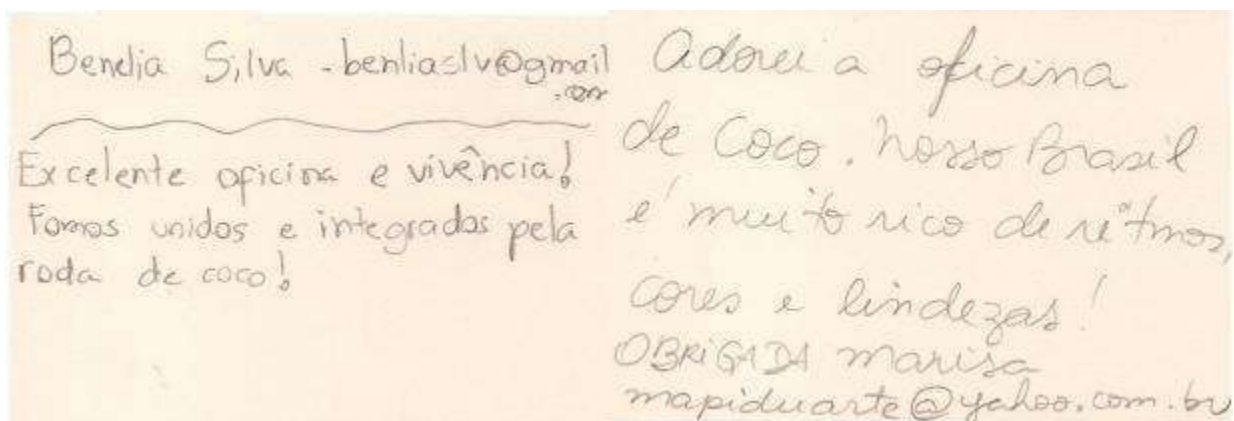 Benelia Silva - benliaslv@gmail
.com
Excelente oficina e vivência!
Fomos unidos e integrados pela
roda de coco!
Adorei a oficina
de Coco. Nosso Brasil
é muito rico de ritmos,
cores e lindezas!
OBRIGADA marisa
mapiduarte@yahoo.com.br